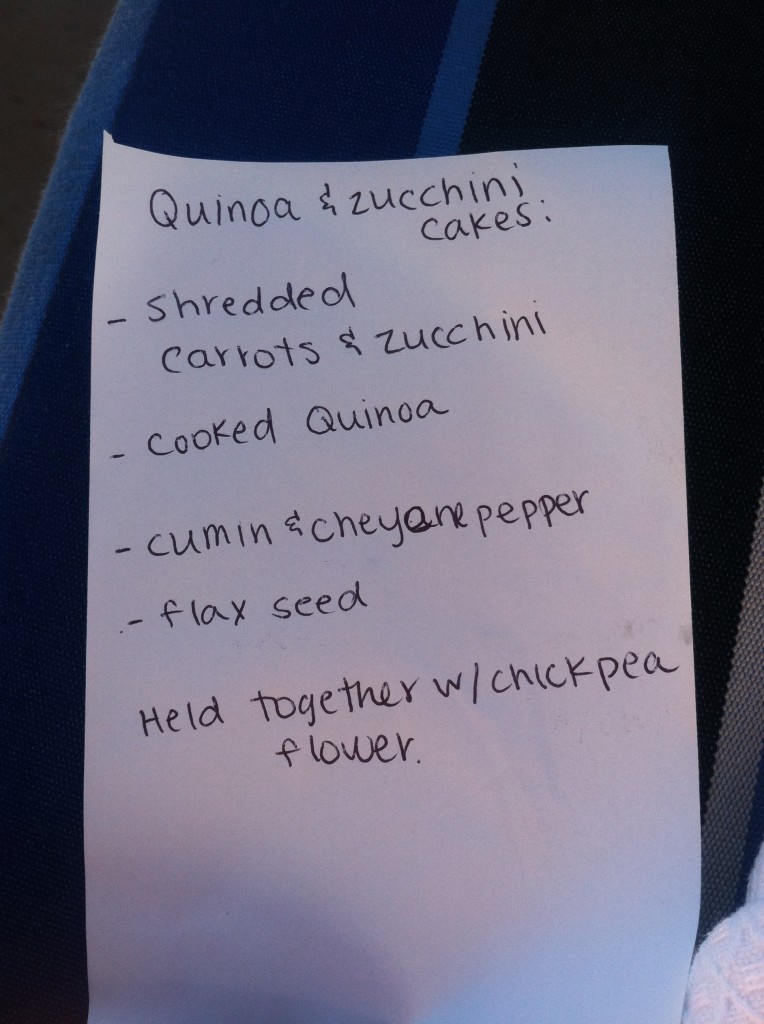 Quinoa & zucchini
cakes:
- shredded
carrots & zucchini
- cooked Quinoa
- cumin & cheyane pepper
- flax seed
Held together w/ chickpea
flower.